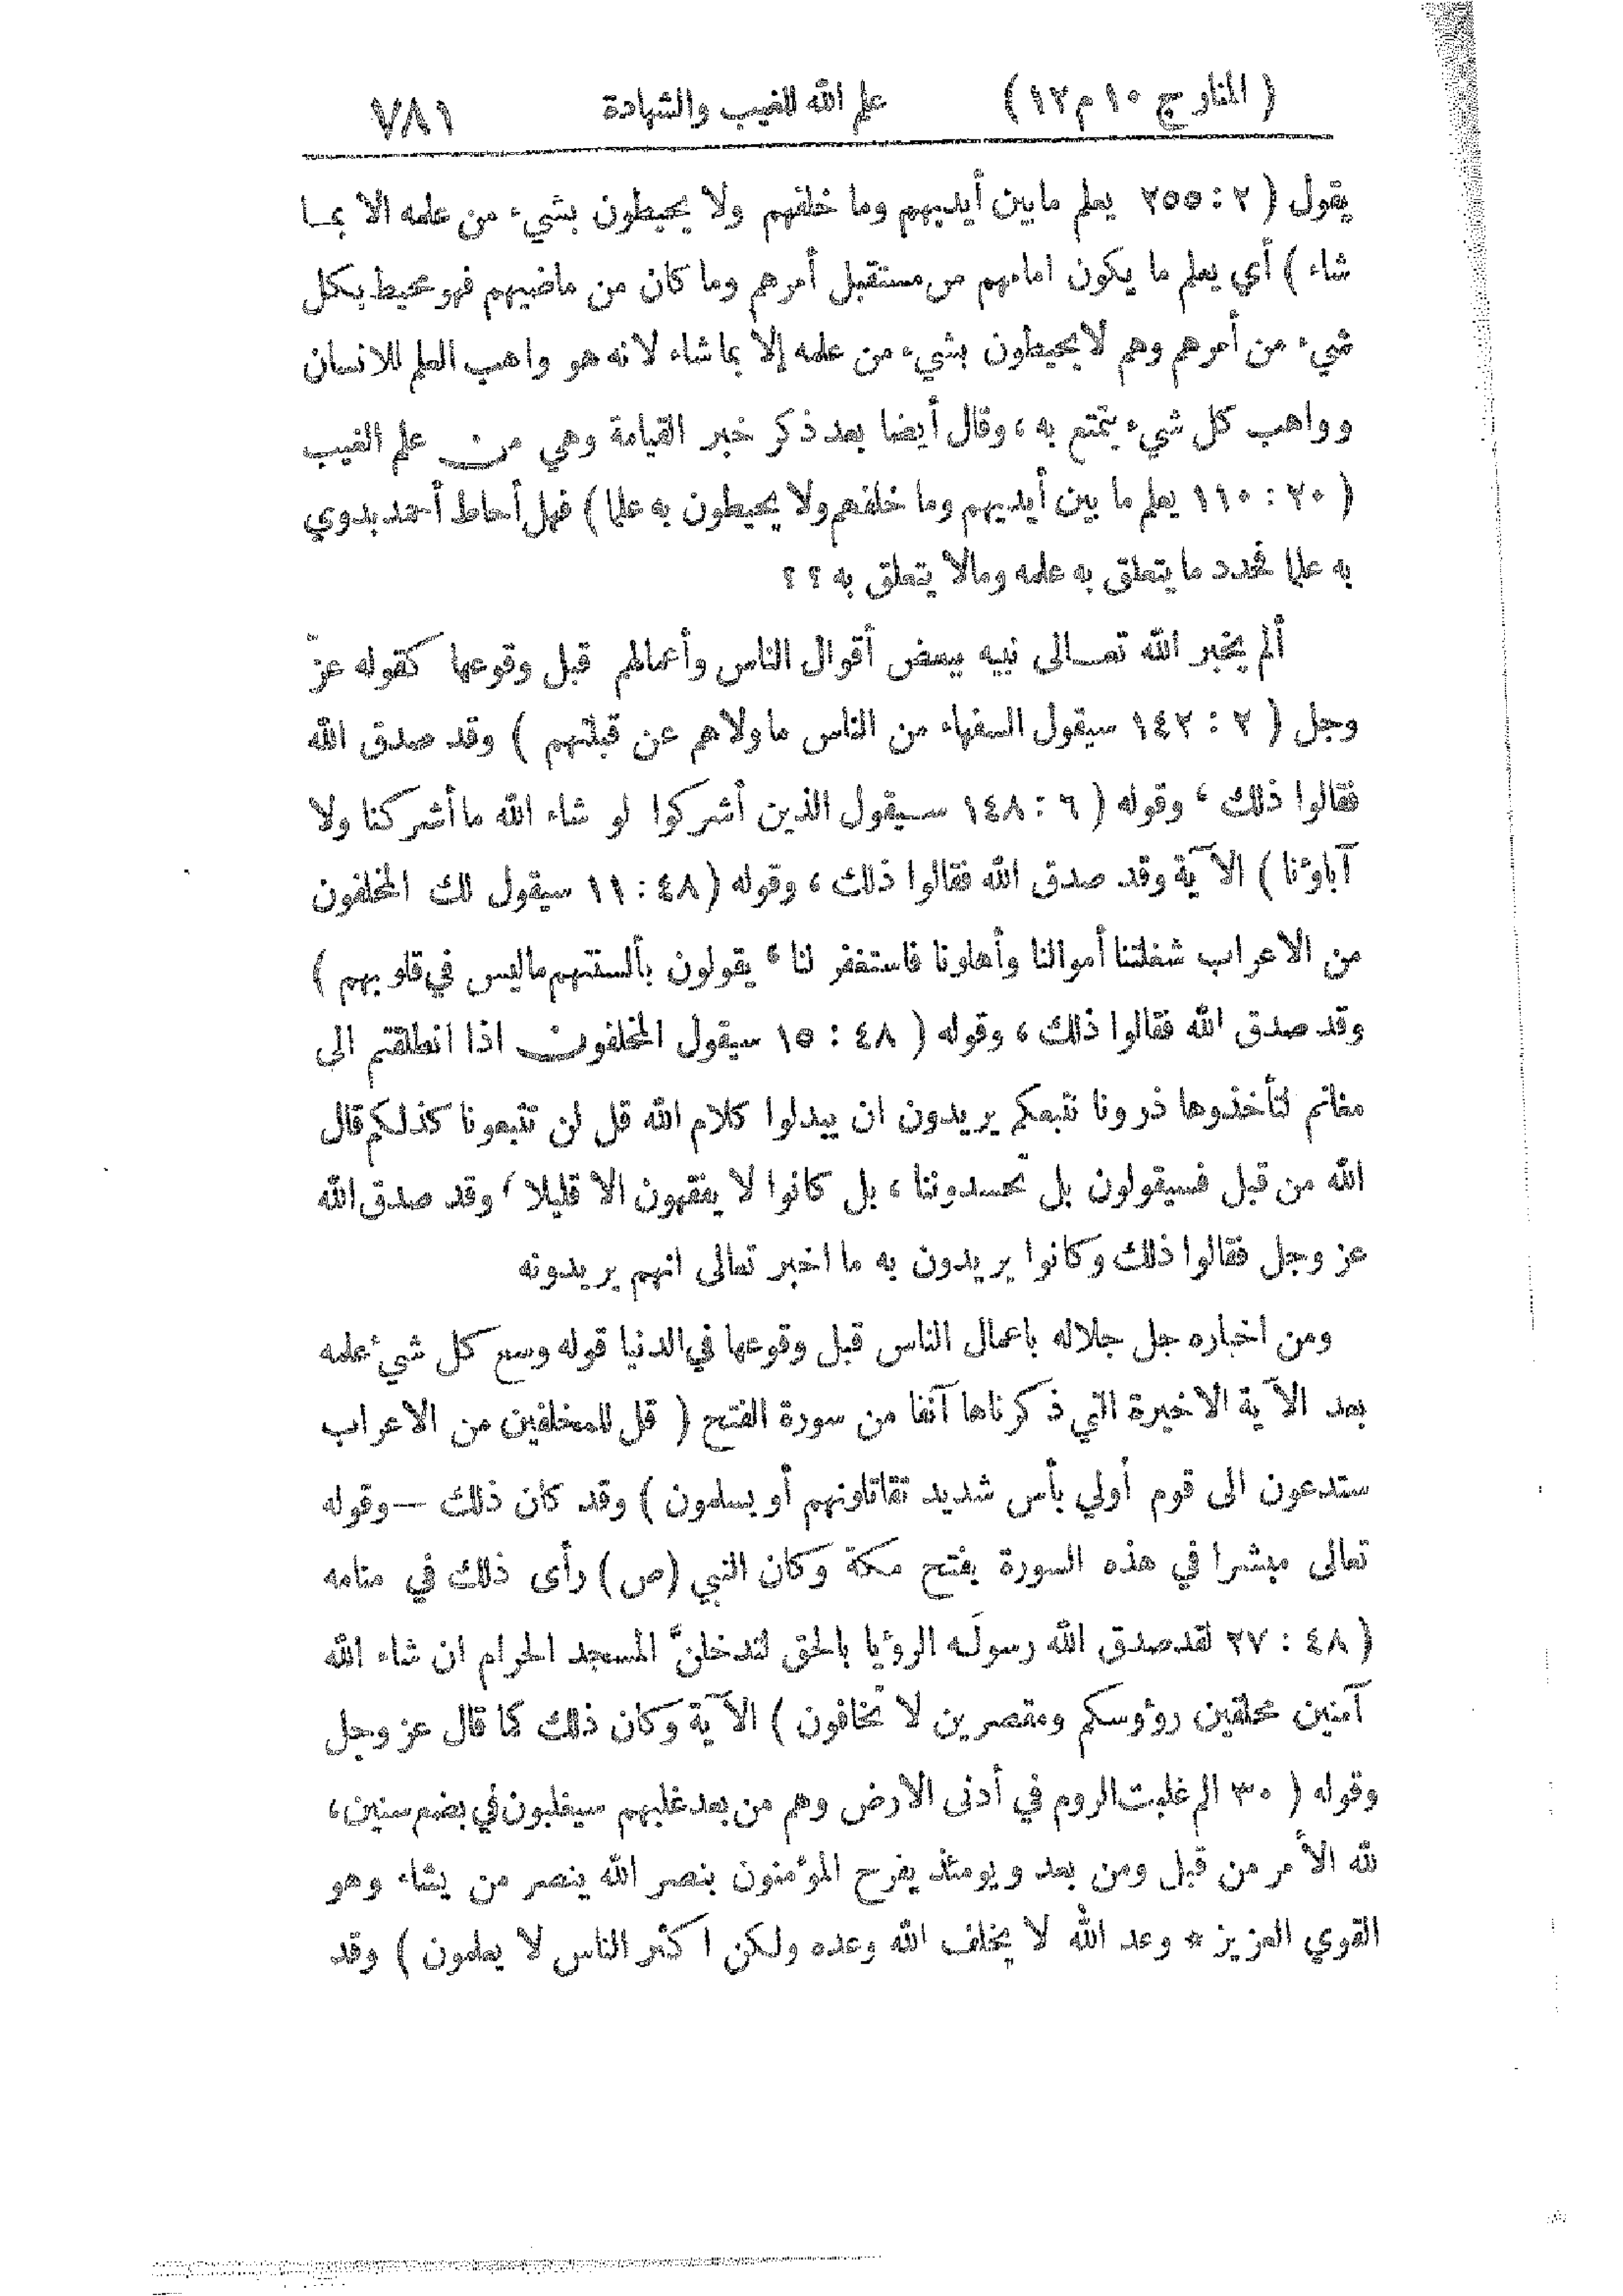 ( المنار ج ١٠ م ١٢ ) علم الله للغيب والشهادة ٧٨١
يقول ( ٢ : ٢٥٥ يعلم ما بين أيديهم وما خلفهم ولا يحيطون بشيء من علمه الا بمـا
شاء ) أي يعلم ما يكون امامهم من مستقبل أمرهم وما كان من ماضيهم فهو محيط بكل
شيء من أمرهم وهم لا يحيطون بشيء من علمه إلا بما شاء لانه هو واهب العلم للانسان
وواهب كل شيء يتمتع به ، وقال أيضا بعد ذكر خبر القيامة وهي من علم الغيب
( ٢٠ : ١١٠ يعلم ما بين أيديهم وما خلفهم ولا يحيطون به علما ) فهل أحاط أحمد بدوي
به علما فحدد ما يتعلق به علمه ومالا يتعلق به ؟ ؟
ألم يخبر الله تعـالى نبيه ببعض أقوال الناس وأعمالهم قبل وقوعها كقوله عزّ
وجل ( ٢ : ١٤٢ سيقول السفهاء من الناس ما ولاهم عن قبلتهم ) وقد صدق الله
فقالوا ذلك ، وقوله ( ٦ : ١٤٨ سـيقول الذين أشركوا لو شاء الله ما أشركنا ولا
آباؤنا ) الآية وقد صدق الله فقالوا ذلك ، وقوله ( ٤٨ : ١١ سيقول لك المخلفون
من الاعراب شغلتنا أموالنا وأهلونا فاستغفر لنا ، يقولون بألسنتهم ما ليس في قلوبهم )
وقد صدق الله فقالوا ذلك ، وقوله ( ٤٨ : ١٥ سيقول المخلفون اذا انطلقتم الى
مغانم لتأخذوها ذرونا نتبعكم يريدون ان يبدلوا كلام الله قل لن تتبعونا كذلكم قال
الله من قبل فسيقولون بل تحسدوننا ، بل كانوا لا يفقهون الا قليلا ، وقد صدق الله
عز وجل فقالوا ذلك وكانوا يريدون به ما اخبر تعالى انهم يريدونه
ومن اخباره جل جلاله باعمال الناس قبل وقوعها في الدنيا قوله وسع كل شيء علمه
بعد الآية الاخيرة التي ذكرناها آنفا من سورة الفتح ( قل للمخلفين من الاعراب
ستدعون الى قوم أولي بأس شديد تقاتلونهم أو يسلمون ) وقد كان ذلك — وقوله
تعالى مبشرا في هذه السورة بفتح مكة وكان النبي (ص) رأى ذلك في منامه
( ٤٨ : ٢٧ لقد صدق الله رسولَه الرؤيا بالحق لتدخلنَّ المسجد الحرام ان شاء الله
آمنين محلقين رؤوسكم ومقصرين لا تخافون ) الآية وكان ذلك كما قال عز وجل
وقوله ( ٣٠ الم غلبت الروم في أدنى الارض وهم من بعد غلبهم سيغلبون في بضع سنين ،
لله الأمر من قبل ومن بعد ويومئذ يفرح المؤمنون بنصر الله ينصر من يشاء وهو
القوي العزيز * وعد الله لا يخلف الله وعده ولكن اكثر الناس لا يعلمون ) وقد